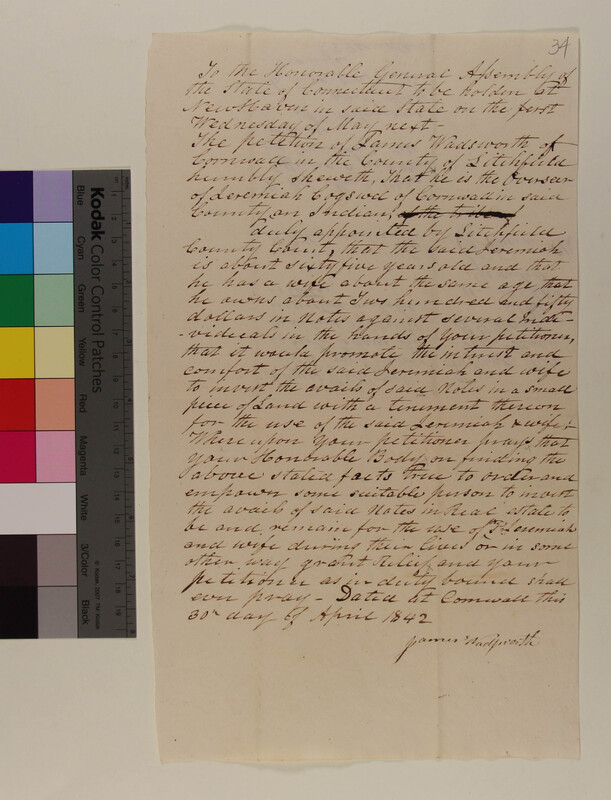 34
To the Honorable General Assembly of
the State of Connecticut to be holden at
New Haven in said State on the first
Wednesday of May next -
The petition of James Wadsworth of
Cornwall in the County of Litchfield
humbly sheweth, That he is the Overseer
of Jeremiah Cogswel of Cornwall in said
County an Indian,
duly appointed by Litchfield
County Court, that the said Jeremiah
is about sixty five years old and that
he has a wife about the same age that
he owns about Two hundred and fifty
dollars in Notes against several Indi-
-viducals in the hands of your petitioner,
that it would promote the intrest and
comfort of the said Jeremiah and wife
to invest the avails of said Notes in a small
piece of Land with a tenement thereon
for the use of the said Jeremiah & wife,
Whereupon Your petitioner prays that
your Honourable Body on finding the
above stated facts true to order and
empower some suitable person to invest
the avails of said Notes in Real estate to
be and remain for the use of Sd Jeremiah
and wife during their lives or in some
other way grant Relief, and your
petitioner as in duty bound shall
ever pray - Dated at Cornwall this
30th day of April 1842
James Wadsworth
Kodak Color Control Patches
Blue
Cyan
Green
Yellow
Red
Magenta
White
3/Color
Black